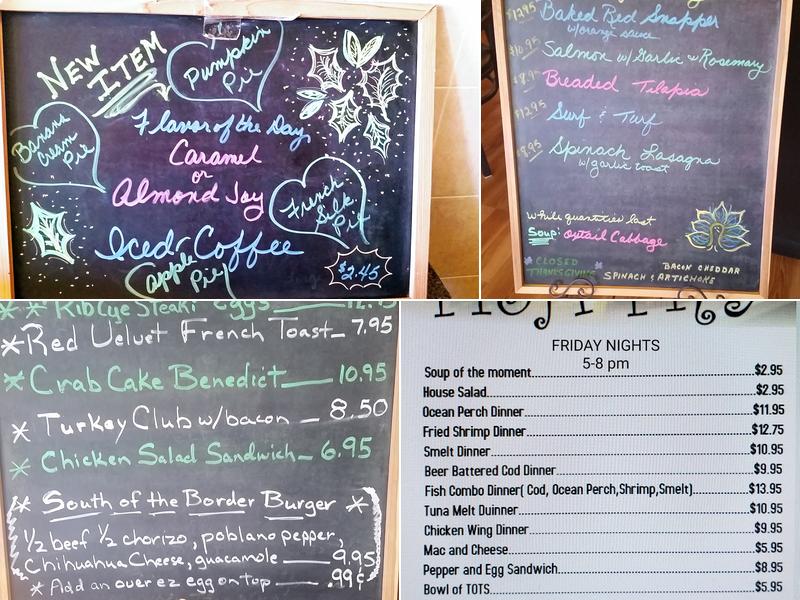 NEW
ITEM
Pumpkin
Pie
Banana
Cream
Pie
Flavor of the Day
Caramel
or
Almond Joy
French
Silk
Pie
Iced Coffee
apple
Pie
$2.45
$12.95 Baked Red Snapper
w/orange sauce
$10.95 Salmon w/ Garlic & Rosemary
Breaded Tilapia
$12.95 Surf & Turf
$8.95 Spinach Lasagna
w/garlic toast
while quantities last
Soup: oxtail Cabbage
CLOSED
THANKSGIVING
BACON CHEDDAR
SPINACH & ARTICHOKE
* RibEye Steak & Eggs
* Red Velvet French Toast 7.95
* Crab Cake Benedict 10.95
* Turkey Club w/bacon 8.50
* Chicken Salad Sandwich 6.95
* South of the Border Burger *
1/2 beef 1/2 chorizo, poblano pepper,
Chihuahua Cheese, guacamole 9.95
* Add an over ez egg on top .99¢
FRIDAY NIGHTS
5-8 pm
Soup of the moment $2.95
House Salad $2.95
Ocean Perch Dinner $11.95
Fried Shrimp Dinner $12.75
Smelt Dinner $10.95
Beer Battered Cod Dinner $9.95
Fish Combo Dinner( Cod, Ocean Perch,Shrimp,Smelt) $13.95
Tuna Melt Duinner $10.95
Chicken Wing Dinner $9.95
Mac and Cheese $5.95
Pepper and Egg Sandwich $8.95
Bowl of TOTS $5.95